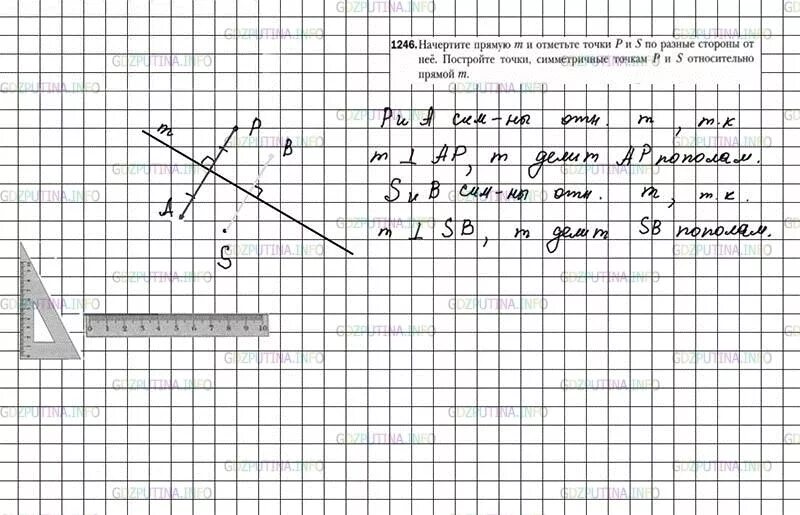 1246. Начертите прямую m и отметьте точки P и S по разные стороны от
неё. Постройте точки, симметричные точкам P и S относительно
прямой m.
P и A сим-ны отн. m, т.к
m ⊥ AP, m делит AP пополам.
S и B сим-ны отн. m, т.к.
m ⊥ SB, m делит SB пополам.
m
P
B
A
S
0 1 2 3 4 5 6 7 8 9 10
GDZPUTINA.INFO